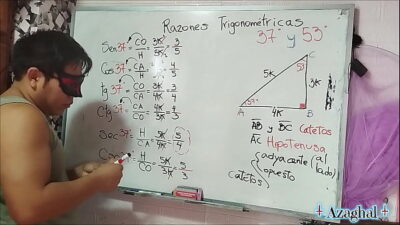 Razones Trigonométricas
37° y 53°
Sen 37° = CO/H = 3K/5K = 3/5
Cos 37° = CA/H = 4K/5K = 4/5
tg 37° = CO/CA = 3K/4K = 3/4
Ctg 37° = CA/CO = 4K/3K = 4/3
Sec 37° = H/CA = 5K/4K = 5/4
= H/CO = 5K/3K = 5/3
C
53°
5K
3K
37°
A
4K
B
AB y BC Catetos
AC Hipotenusa
catetos
adyacente (al lado)
opuesto
+ Azaghal +